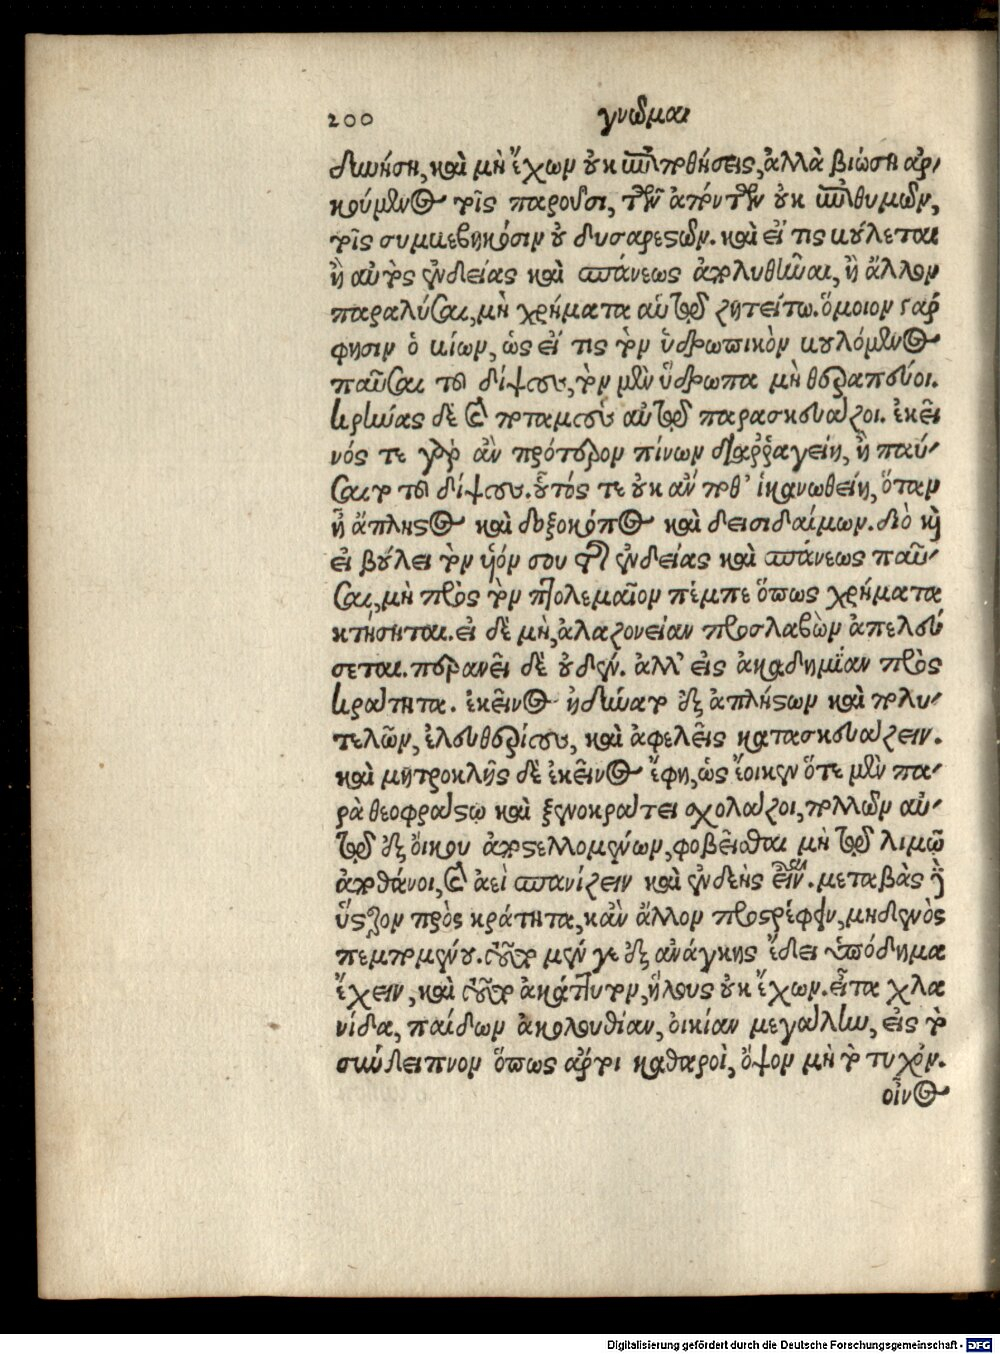 200 γνῶμαι
δυνήσῃ, καὶ μὴ ἔχων οὐκ ἐπιποθήσεις, ἀλλὰ βιώσῃ ἀρ‐
κούμενος τοῖς παροῦσι, τῶν ἀπόντων οὐκ ἐπιθυμῶν,
τοῖς συμβεβηκόσιν οὐ δυσαρεστῶν. καὶ εἴ τις βούλεται
ἢ αὐτὸς ἐνδείας καὶ σπάνεως ἀπολυθῆναι, ἢ ἄλλον
παραλύσαι, μὴ χρήματα αὐτῷ ζητείτω. ὅμοιον γάρ
φησιν ὁ βίων, ὡς εἴ τις τὸν ὑδρωπικὸν βουλόμενος
παῦσαι τοῦ δίψους, τὸν μὲν ὕδρωπα μὴ θεραπεύοι.
κρήνας δὲ καὶ ποταμοὺς αὐτῷ παρασκευάζοι. ἐκεῖ
νός τε γὰρ ἂν πρότερον πίνων διαρραγείη, ἢ παύ‐
σαιτο τοῦ δίψους. οὗτός τε οὐκ ἄν ποθ' ἱκανωθείη, ὅταν
ᾖ ἄπληστος καὶ δοξοκόπος καὶ δεισιδαίμων. διὸ καὶ
εἰ βούλει τὸν υἱόν σου τῆς ἐνδείας καὶ σπάνεως παῦ‐
σαι, μὴ πρὸς τὸν πτολεμαῖον πέμπε ὅπως χρήματα
κτήσηται. εἰ δὲ μὴ, ἀλαζονείαν προσλαβὼν ἀπελεύ
σεται. περανεῖ δὲ οὐδέν. ἀλλ' εἰς ἀκαδημίαν πρὸς
κράτητα. ἐκεῖνος ἠδύνατο ἐξ ἀπλήστων καὶ πολυ‐
τελῶν, ἐλευθερίους, καὶ ἀφελεῖς κατασκευάζειν.
καὶ μητροκλῆς δὲ ἐκεῖνος ἔφη, ὡς ἔοικεν ὅτε μὲν πα‐
ρὰ θεοφράστῳ καὶ ξενοκράτει σχολάζοι, πολλῶν αὐ‐
τῷ ἐξ οἴκου ἀποστελλομένων, φοβεῖσθαι μὴ τῷ λιμῷ
ἀποθάνοι, καὶ ἀεὶ σπανίζειν καὶ ἐνδεὴς εἶναι. μεταβὰς δὲ
ὕστερον πρὸς κράτητα, κἂν ἄλλον προστρέφειν, μηδενὸς
πεμπομένου. τότε μέν γε ἐξ ἀνάγκης ἔδει ὑπόδημα
ἔχειν, καὶ τοῦτο ἀκάττυτον, ἥλους οὐκ ἔχων. εἶτα χλα
νίδα, παίδων ἀκολουθίαν, οἰκίαν μεγάλην, εἰς τὸ
σύνδειπνον ὅπως ἄρτοι καθαροὶ, ὄψον μὴ τὸ τυχόν.
οἶνος
Digitalisierung gefördert durch die Deutsche Forschungsgemeinschaft - DFG